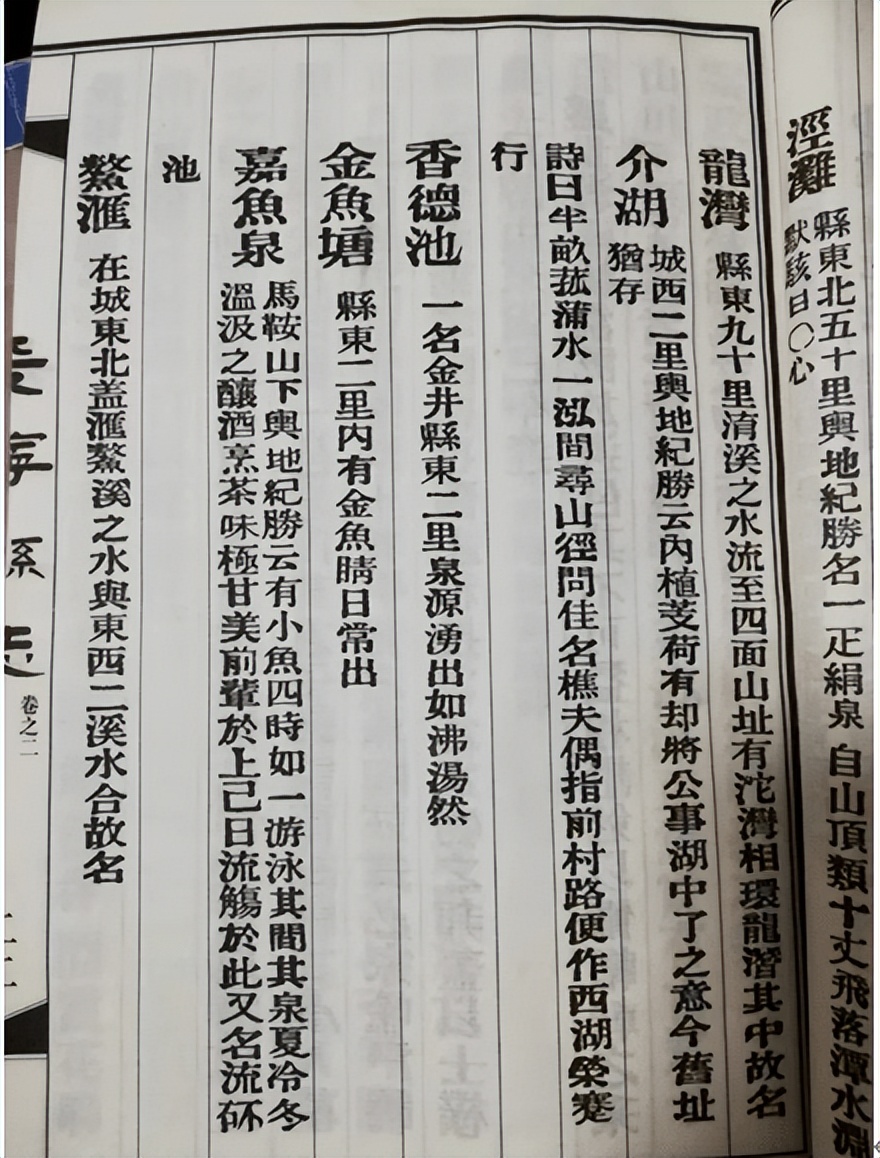 涇灘
縣東北五十里輿地紀勝名一疋絹泉 自山頂類十丈飛落潭水淵
默該日〇心
龍灣 縣東九十里淯溪之水流至四面山址有沱灣相環龍潛其中故名
介湖 城西二里輿地紀勝云內植芰荷有却將公事湖中了之意今舊址
猶存
詩曰半畝菰蒲水一泓間尋山徑問佳名樵夫偶指前村路便作西湖榮蹇
行
香德池 一名金井縣東二里泉源湧出如沸湯然
金魚塘 縣東二里內有金魚晴日常出
嘉魚泉 馬鞍山下輿地紀勝云有小魚四時如一游泳其間其泉夏冷冬
溫汲之釀酒烹茶味極甘美前輩於上己日流觴於此又名流杯
池
鰲滙 在城東北盖滙鰲溪之水與東西二溪水合故名
縣志
卷之二